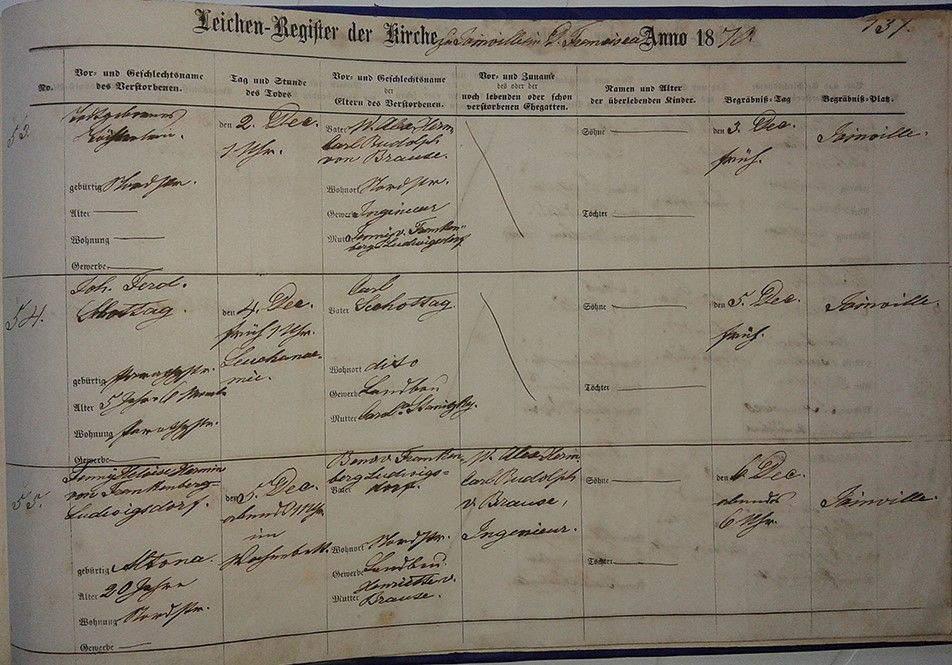 Leichen-Register der Kirche zu Joinville in D. Francisca Anno 1870.
137.
No.
Vor- und Geschlechtsname
des Verstorbenen.
Tag und Stunde
des Todes
Vor- und Geschlechtsname
der
Eltern des Verstorbenen.
Vor- und Zuname
des oder der
noch lebenden oder schon
verstorbenen Ehegatten.
Namen und Alter
der überlebenden Kinder.
Begräbniß-Tag
Begräbniß-Platz.
53.
Todtgebornes
Töchterlein.
gebürtig Nordstr.
Alter
Wohnung
Gewerbe
den 2. Dec.
1 Uhr.
Vater W. Alex. Herm.
Carl Rudolph
von Brause.
Wohnort Nordstr.
Gewerbe Ingenieur
Mutter Fennij v. Franken-
berg-Ludwigsdorf
Söhne
Töchter
den 3. Dec.
früh.
Joinville.
54.
Joh. Ferd.
Schossag.
gebürtig
Alter 5 Jahre 6
Wohnung
Gewerbe
den 4. Dec.
früh 1 Uhr.
Carl
Vater Schossag.
Wohnort dito
Gewerbe Landbau
Mutter
Söhne
Töchter
den 5. Dec.
früh.
Joinville.
55.
Fennij Heloise Hermin
von Frankenberg-
Ludwigsdorf.
gebürtig Altona.
Alter 20 Jahre
Wohnung Nordstr.
Gewerbe
den 5. Dec.
abends Uhr
im
Wochenbett.
Beno v. Franken-
berg-Ludwigs-
Vater dorf.
Wohnort Nordstr.
Gewerbe Landbau.
Henriette v.
Mutter Brause.
W. Alex. Herm.
Carl Rudolph
v. Brause,
Ingenieur.
Söhne
Töchter
den 6 Dec.
abends
6 Uhr.
Joinville.